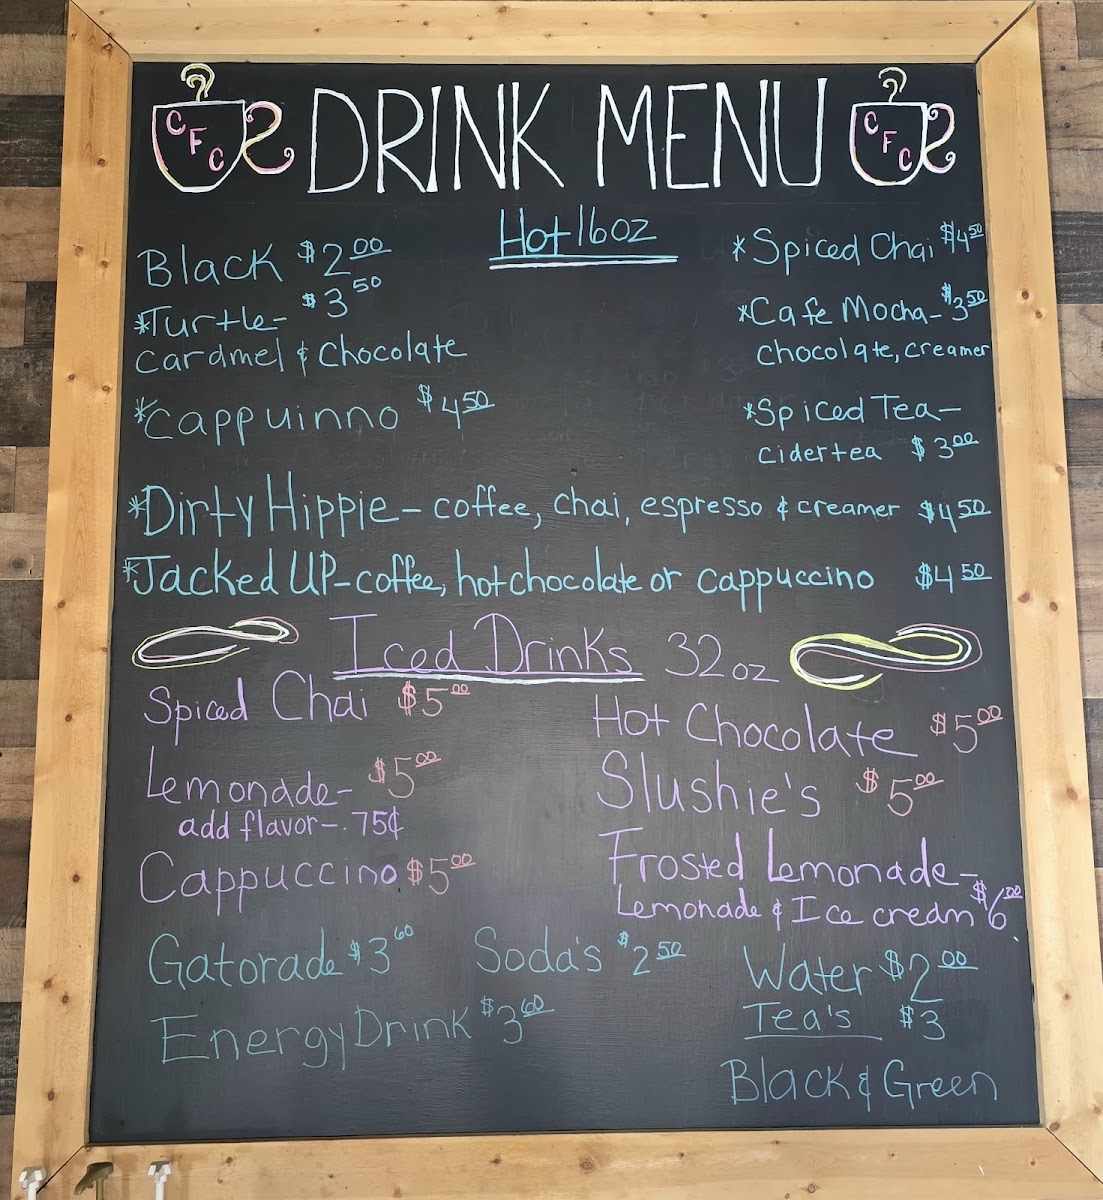 CFC DRINK MENU CFC
Hot 16oz
Black $2.00
*Turtle- $3.50
caramel & chocolate
*Cappuinno $4.50
*Spiced Chai $4.50
*Cafe Mocha- $3.50
chocolate, creamer
*Spiced Tea-
cider tea $3.00
*Dirty Hippie - coffee, chai, espresso & creamer $4.50
*Jacked UP - coffee, hot chocolate or cappuccino $4.50
Iced Drinks 32oz
Spiced Chai $5.00
Lemonade- $5.00
add flavor-.75¢
Cappuccino $5.00
Hot Chocolate $5.00
Slushie's $5.00
Frosted Lemonade-
Lemonade & Ice cream $6.00
Gatorade $3.60 Soda's $2.50 Water $2.00
Energy Drink $3.60
Tea's $3
Black & Green